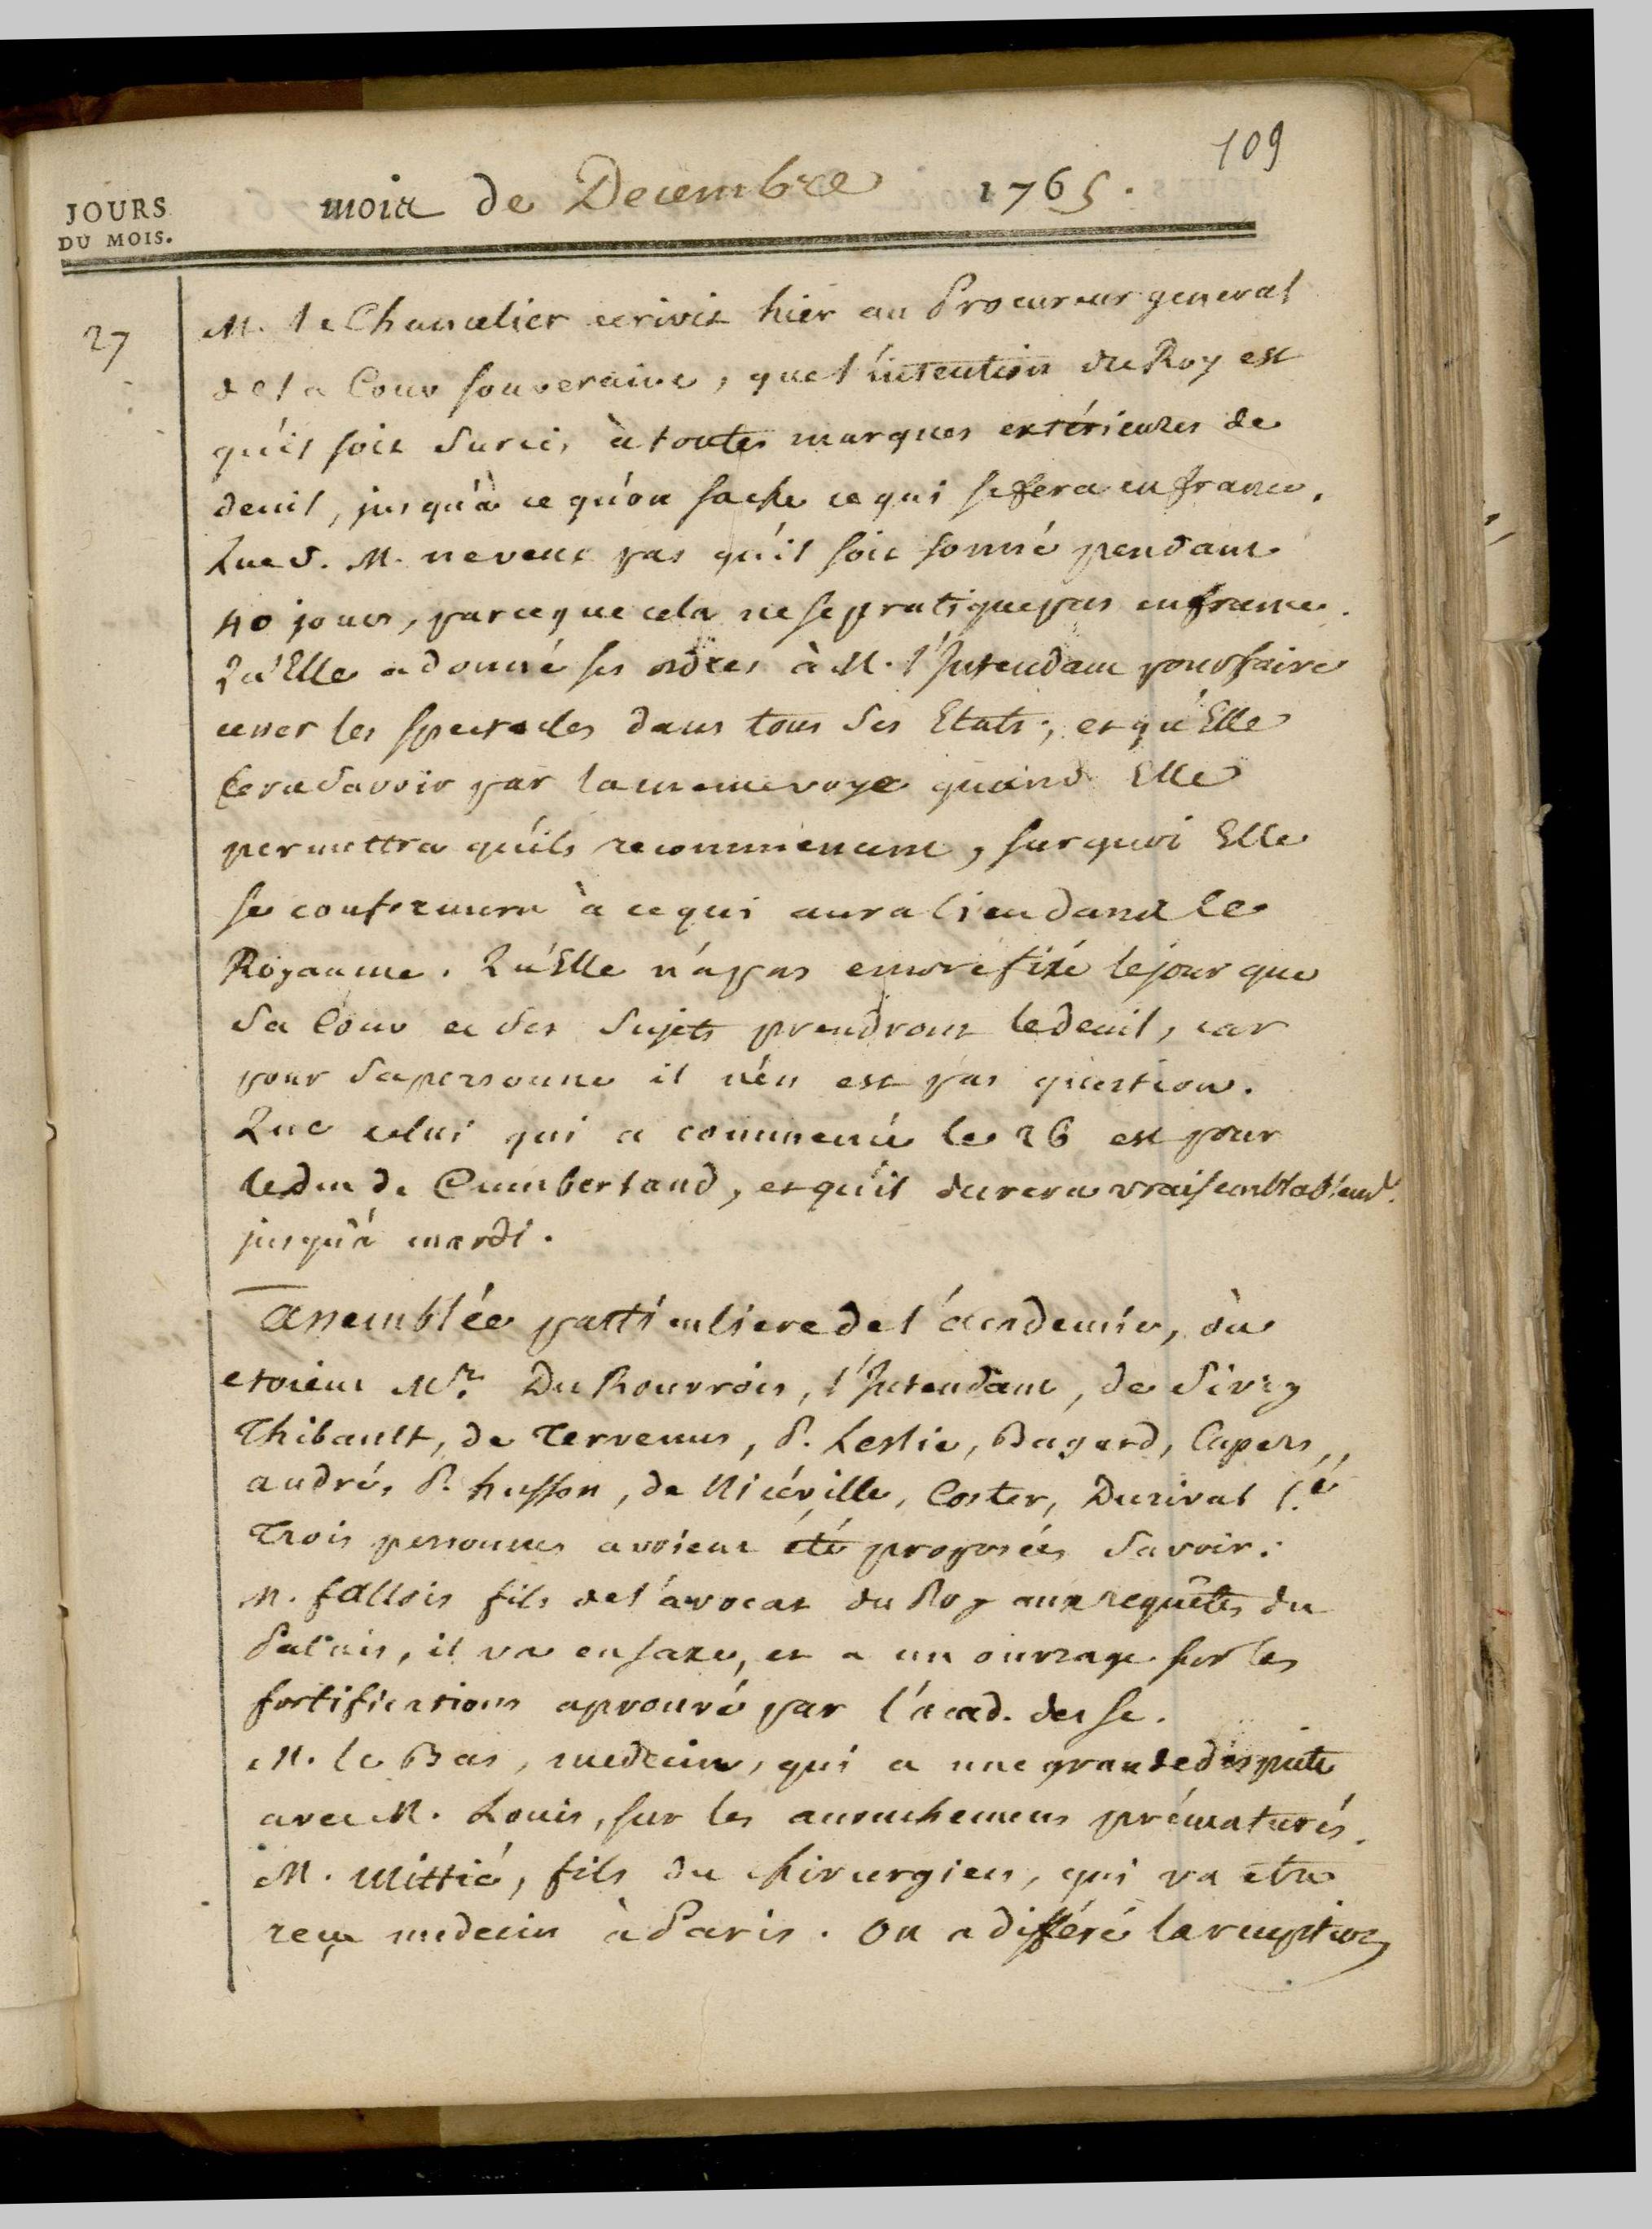 109
JOURS
DU MOIS.
mois de Decembre 1765.
27
M. le Chancelier ecrivit hier au Procureur general
de la Cour souveraine, que l'intention du Roy est
qu'il soit surcis à toutes marques extérieures de
deuil, jusqu'à ce qu'on sache ce qui se fera en france.
Que S. M. ne veut pas qu'il soit sonné pendant
40 jours, parceque cela ne se pratique pas en france.
Qu'Elle a donné ses ordres à M. l'Intendant pour faire
cesser les spectacles dans tous ses Etats; et qu'Elle
fera savoir par la meme voye quand Elle
permettra qu'ils recommencent, surquoi Elle
se conformera à ce qui aura lieu dans le
Royaume. Qu'Elle n'a pas encore fixé le jour que
sa Cour et ses sujets prendront le deuil, car
pour sa personne il n'en est pas question.
Que celui qui a commencé le 26 est pour
le duc de Cumberland, et qu'il durera vraisemblablemt.
jusqu'à mardi.
Assemblée particuliere de l'academie, où
etoient Mrs. Du Rouvrois, l'Intendant, de Sivry
Thibault, de Tervenus, P. Leslie, Bagard, Cupers,
andré, P. husson, de Nicéville, Coster, Durival l'é
Trois personnes avoient été proposées savoir:
M. fallois fils de l'avocat du Roy aux requêtes du
Palais, il va en saxe, et a un ouvrage sur les
fortifications aprouvé par l'acad. des sc.
M. le Bas, medecin, qui a une grande dispute
avec M. Louis, sur les acouchemens prématurés.
M. Mittié, fils du chirurgien, qui va etre
reçu medecin à Paris. On a différé la reception